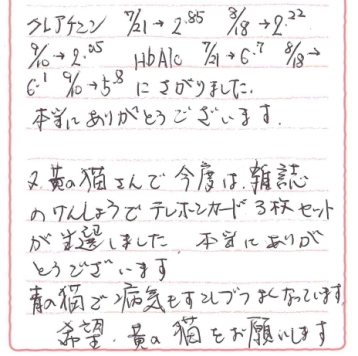 クレアチニン 7/21→2.85 8/18→2.22
9/10→2.05 HbA1c 7/21→6.7 8/18→
6.1 9/10→5.8 にさがりました.
本当にありがとうございます.
又、黄の猫さんで今度は、雑誌
のけんしょうでテレホンカード3枚セット
が当選しました、本当にありが
とうございます
青の猫で病気もすこしづつよくなっています.
希望、黄の猫をお願いします